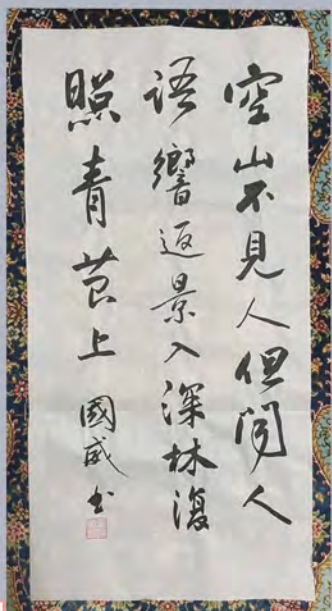 空山不見人但聞人
語響返景入深林復
照青苔上 國威书